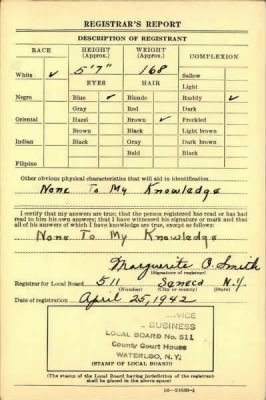 REGISTRAR'S REPORT
DESCRIPTION OF REGISTRANT
RACE HEIGHT (Approx.) WEIGHT (Approx.) COMPLEXION
White ✓ 5'7" 168 Sallow
EYES HAIR Light
Negro Blue ✓ Blonde Ruddy ✓
Gray Red Dark
Oriental Hazel Brown ✓ Freckled
Brown Black Light brown
Indian Black Gray Dark brown
Bald Black
Filipino
Other obvious physical characteristics that will aid in identification
None To My Knowledge
I certify that my answers are true; that the person registered has read or has had
read to him his own answers; that I have witnessed his signature or mark and that
all of his answers of which I have knowledge are true, except as follows:
None To My Knowledge
Marguerite O. Smith
(Signature of registrar)
Registrar for Local Board 511 Seneca N.Y.
(Number) (City or county) (State)
Date of registration April 25, 1942
VICE
BUSINESS
LOCAL BOARD No. 511
County Court House
WATERLOO, N.Y.
(STAMP OF LOCAL BOARD)
(The stamp of the Local Board having jurisdiction of the registrant
shall be placed in the above space)